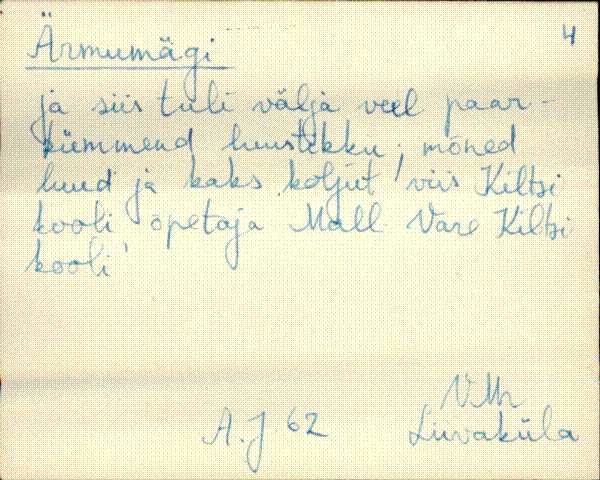 4
Ärmumägi
ja siis tuli välja veel paar-
kümmend luustikku, mõned
luud ja kaks koljut viis Kiltsi
kooli õpetaja Mall Vare Kiltsi
kooli'
VMr
A.J. 62 Liivaküla